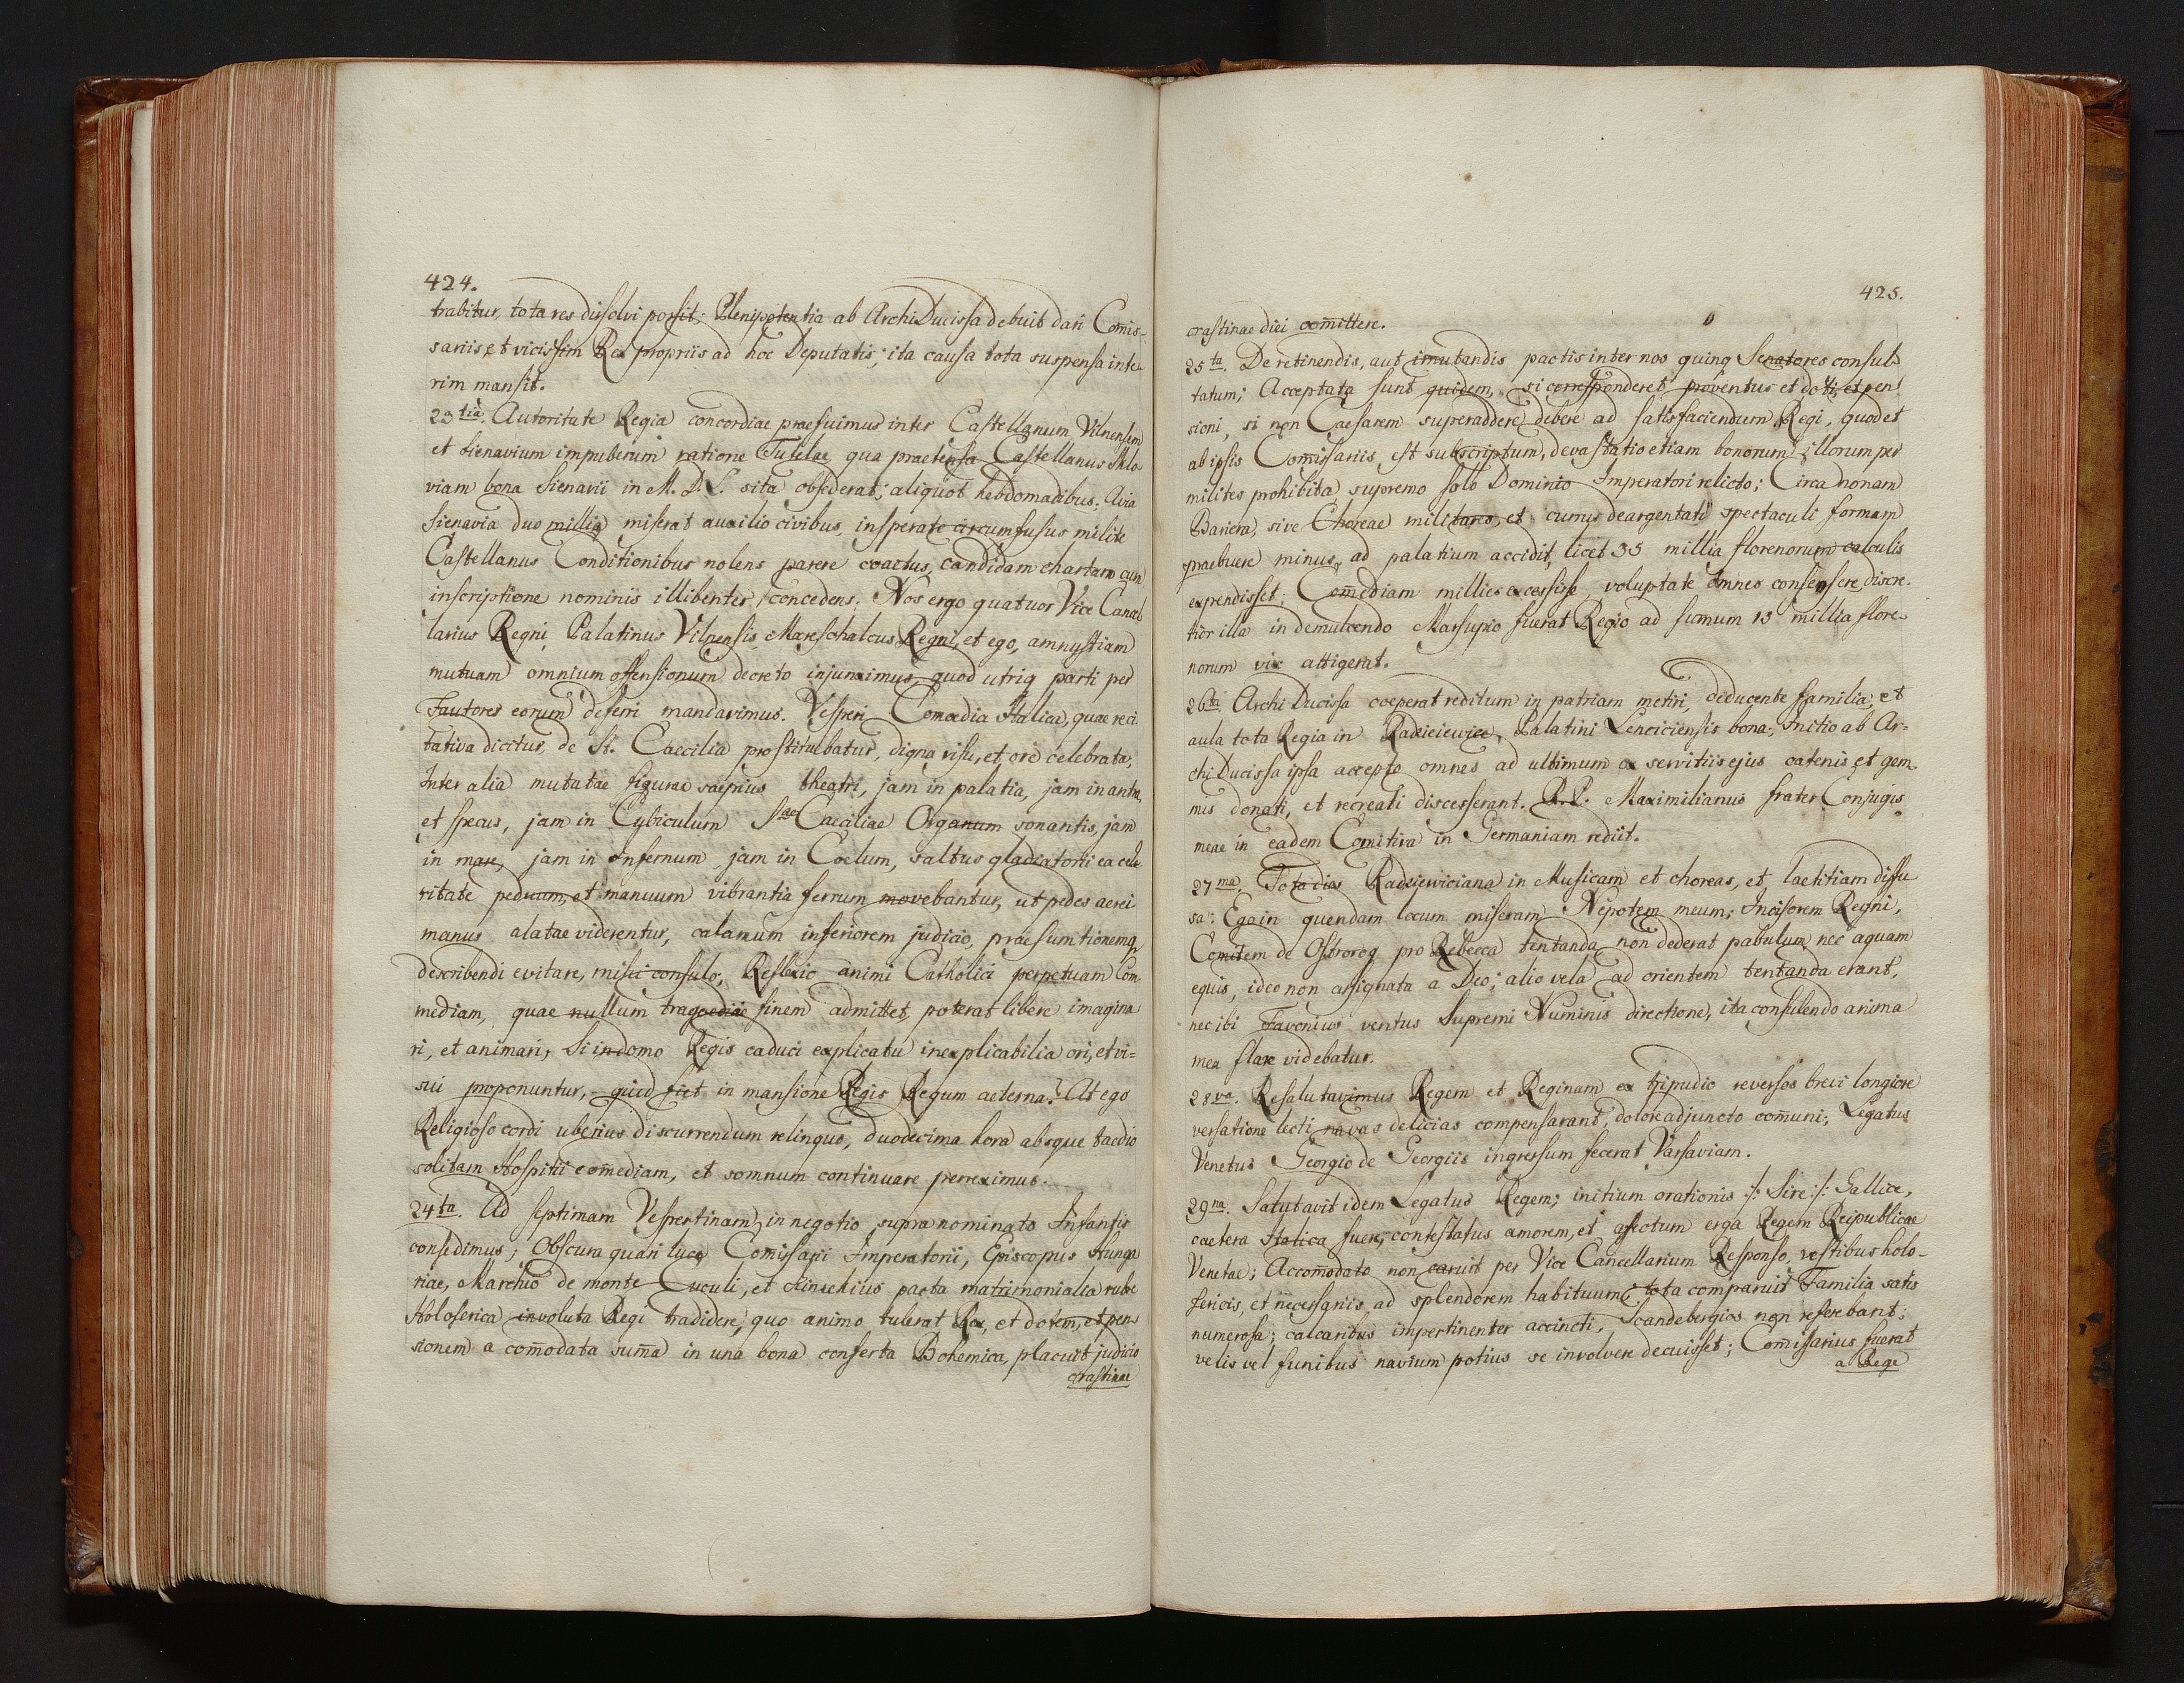 424.
trabitur, tota res dissolvi possit; Plenipotentia ab Archi Ducissa debuit dari Comis-
sariis et vicissim Rex propriis ad hoc Deputatis; ita causa tota suspensa inte-
rim mansit.
23tia. Autoritate Regia concordiae praefuimus inter Castellanum Vilnensem
et Sienavium impuberum ratione Tutelae qua praetensa Castellanus Sklo-
viam bona Sienavii in M. D. L. sita obsederat; aliquot hebdomadibus; Avia
Sienavia duo millia miserat auxilio civibus, insperate circumfusus milite
Castellanus Conditionibus nolens parere coactus, candidam chartam cum
inscriptione nominis illibenter concedens. Nos ergo quatuor Vice Cancel
larius Regni, Palatinus Vilnensis, Mareschalcus Regni, et ego, amnystiam
mutuam omnium offensionum decreto injunximus, quod utriq parti per
Fautores eorum deferri mandavimus. Vesperi Comoedia Italica, quae reci-
tativa dicitur, de St. Caecilia prostituebatur, digna visu, et ore celebrata,
Inter alia mutatae figurae saepius theatri, jam in palatia, jam in antra,
et specus, jam in Cubiculum Stae Caeciliae Organum sonantis, jam
in mare, jam in Infernum, jam in Coelum, saltus gladiatorii ea cele
ritate peduum, et manuum vibrantia ferrum movebantur, ut pedes aerei
manus alatae viderentur, calamum inferiorem judicio, praesumtionemq
describendi evitare, mihi consulo; Reflexio animi Catholici perpetuam Com-
mediam, quae nullum tragoediae finem admittet, poterat libere imagina
ri, et animari, Si in domo Regis caduci explicatu inexplicabilia ori, et vi-
sui proponuntur, quid fiet in mansione Regis Regum aeterna? At ego
Religioso cordi uberius discurrendum relinquo, duodecima hora absque taedio
solitam Hospitii comediam, et somnum continuare perreximus.
24ta. Ad septimam Vespertinam, in negotio supra nominato Infantis
consedimus; Obscura quasi luce Comissarii Imperatorii, Episcopus Hunga
riae, Marchio de monte Cuculi, et pacta matrimonialia rube
Holoserica involuta Regi tradidere, quo animo tulerat Rex, et dotem, et pen-
sionem a comodata suma in una bona conferta Bohemica, placuit judicio
crastinae
425.
crastinae diei comittere.
25ta. De retinendis, aut imutandis pactis inter nos quinq Senatores consul-
tatum; Acceptata sunt quidem, si corresponderet proventus et doti, et pen-
sioni, si non Caesarem superaddere debere ad satisfaciendum Regi, quod et
ab ipsis Comissariis est subscriptum, devastatio etiam bonorum illorum per
milites prohibita, supremo solo Dominio Imperatori relicto; Circa nonam
Bariera, sive Choreae militares, et currus deargentati spectaculi formam
praebuere minus, ad palatium accidit, licet 35 millia florenorum calculis
expendisset; Comediam millies excessisse, voluptate omnes consensere, discre-
tior illa in demulcendo Marsupio fuerat Regio ad sumum 15 millia flore-
norum vix attigerat.
26ta. Archi Ducissa coeperat reditum in patriam metiri, deducente familia, et
aula tota Regia in Radzieiewice, Palatini Lenciciensis bona; Initio ab Ar-
chi Ducissa ipsa accepto omnes ad ultimum ex servitiis ejus catenis et gem-
mis donati, et recreati discesserant. R. P. Maximilianus frater Conjugis
meae in eadem Comitiva in Germaniam rediit.
27ma. Tota dies Radziewiciana in Musicam et choreas, et laetitiam diffu
sa: Ega in quendam locum miseram Nepotem meum, Incisorem Regni,
Comitem de Ostrorog pro Rebecca tentanda, non dederat pabulum, nec aquam
equis, ideo non assignata a Deo; alio vela ad orientem tentanda erant,
nec ibi Favonius ventus Supremi Numinis directione, ita consulendo anima
mea flare videbatur.
28va. Resalutavimus Regem et Reginam ex tripudio reversos brevi longiore
versatione lecti navas delicias compensarant, dolore adjuncto comuni; Legatus
Venetus Georgio de Georgiis ingressum fecerat Varsaviam.
29na. Salutavit idem Legatus Regem; initium orationis :/: Sire :/: Gallice,
caetera Italica fuere, contestatus amorem, et afectum erga Regem Reipublicae
Venetae; Accomodato non caruit per Vice Cancellarium Responso, vestibus holo-
sericis, et necessariis ad splendorem habituum tota comparuit Familia satis
numerosa; calcaribus impertinenter accincti, Scandebergios non referebant;
velis vel funibus navium potius se involvere decuisset; Comissarius fuerat
a Rege